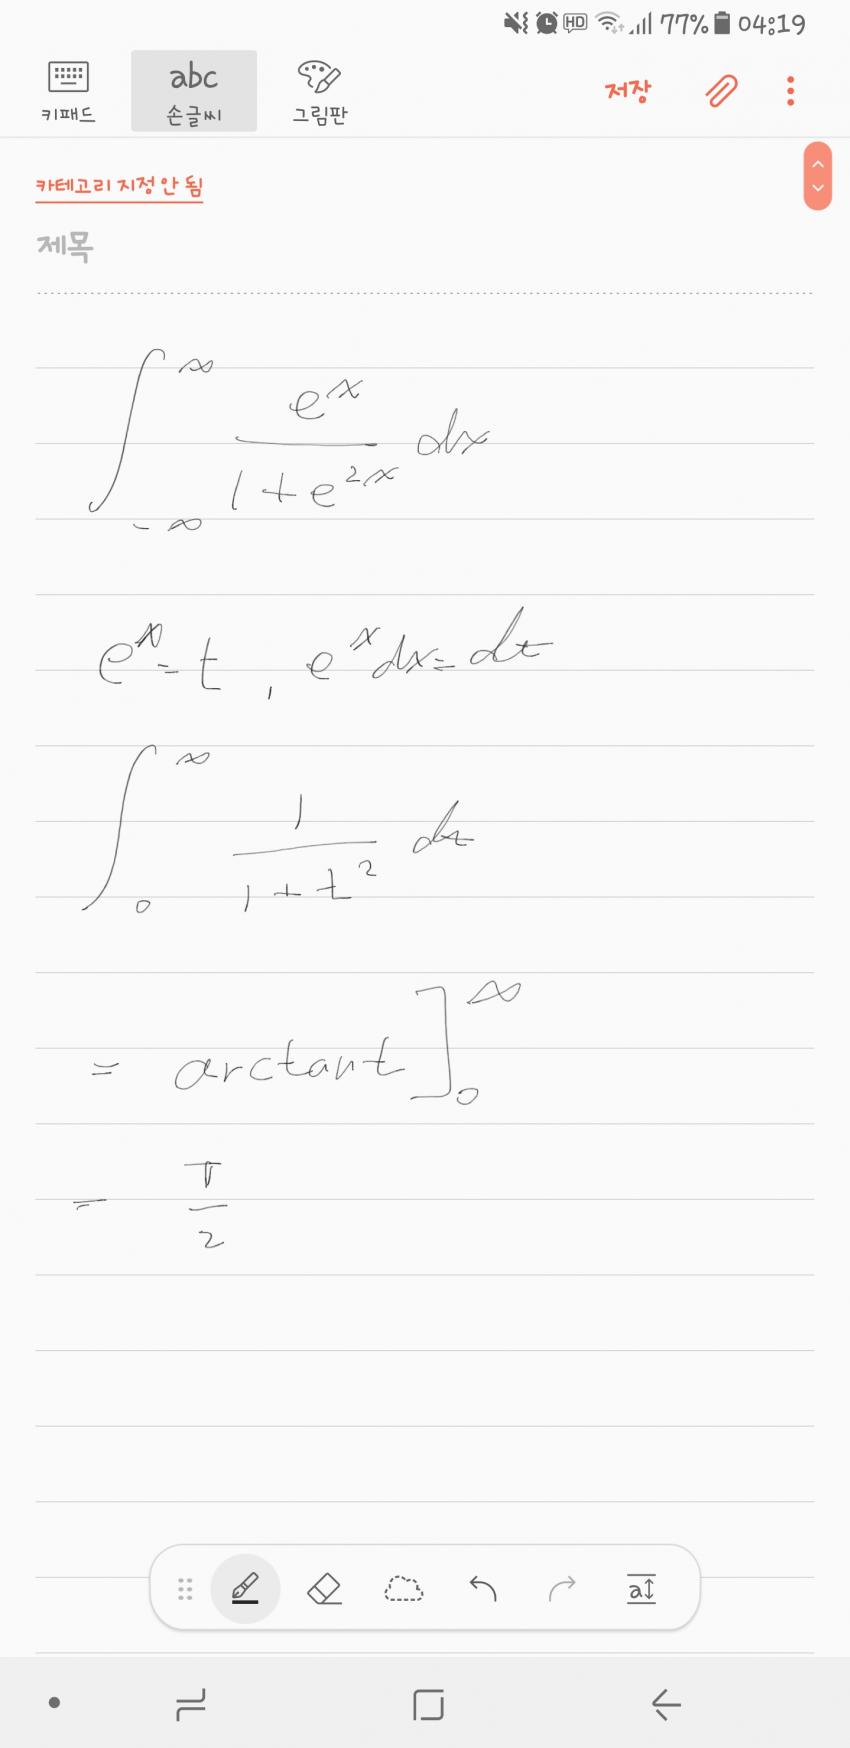 HD 77% 04:19
키패드 abc 손글씨 그림판 저장
카테고리 지정 안 됨
제목
∫_{-∞}^{∞} e^x / (1+e^{2x}) dx
e^x = t, e^x dx = dt
∫_0^∞ 1 / (1+t^2) dt
= arctan t ]_0^∞
= π/2
a